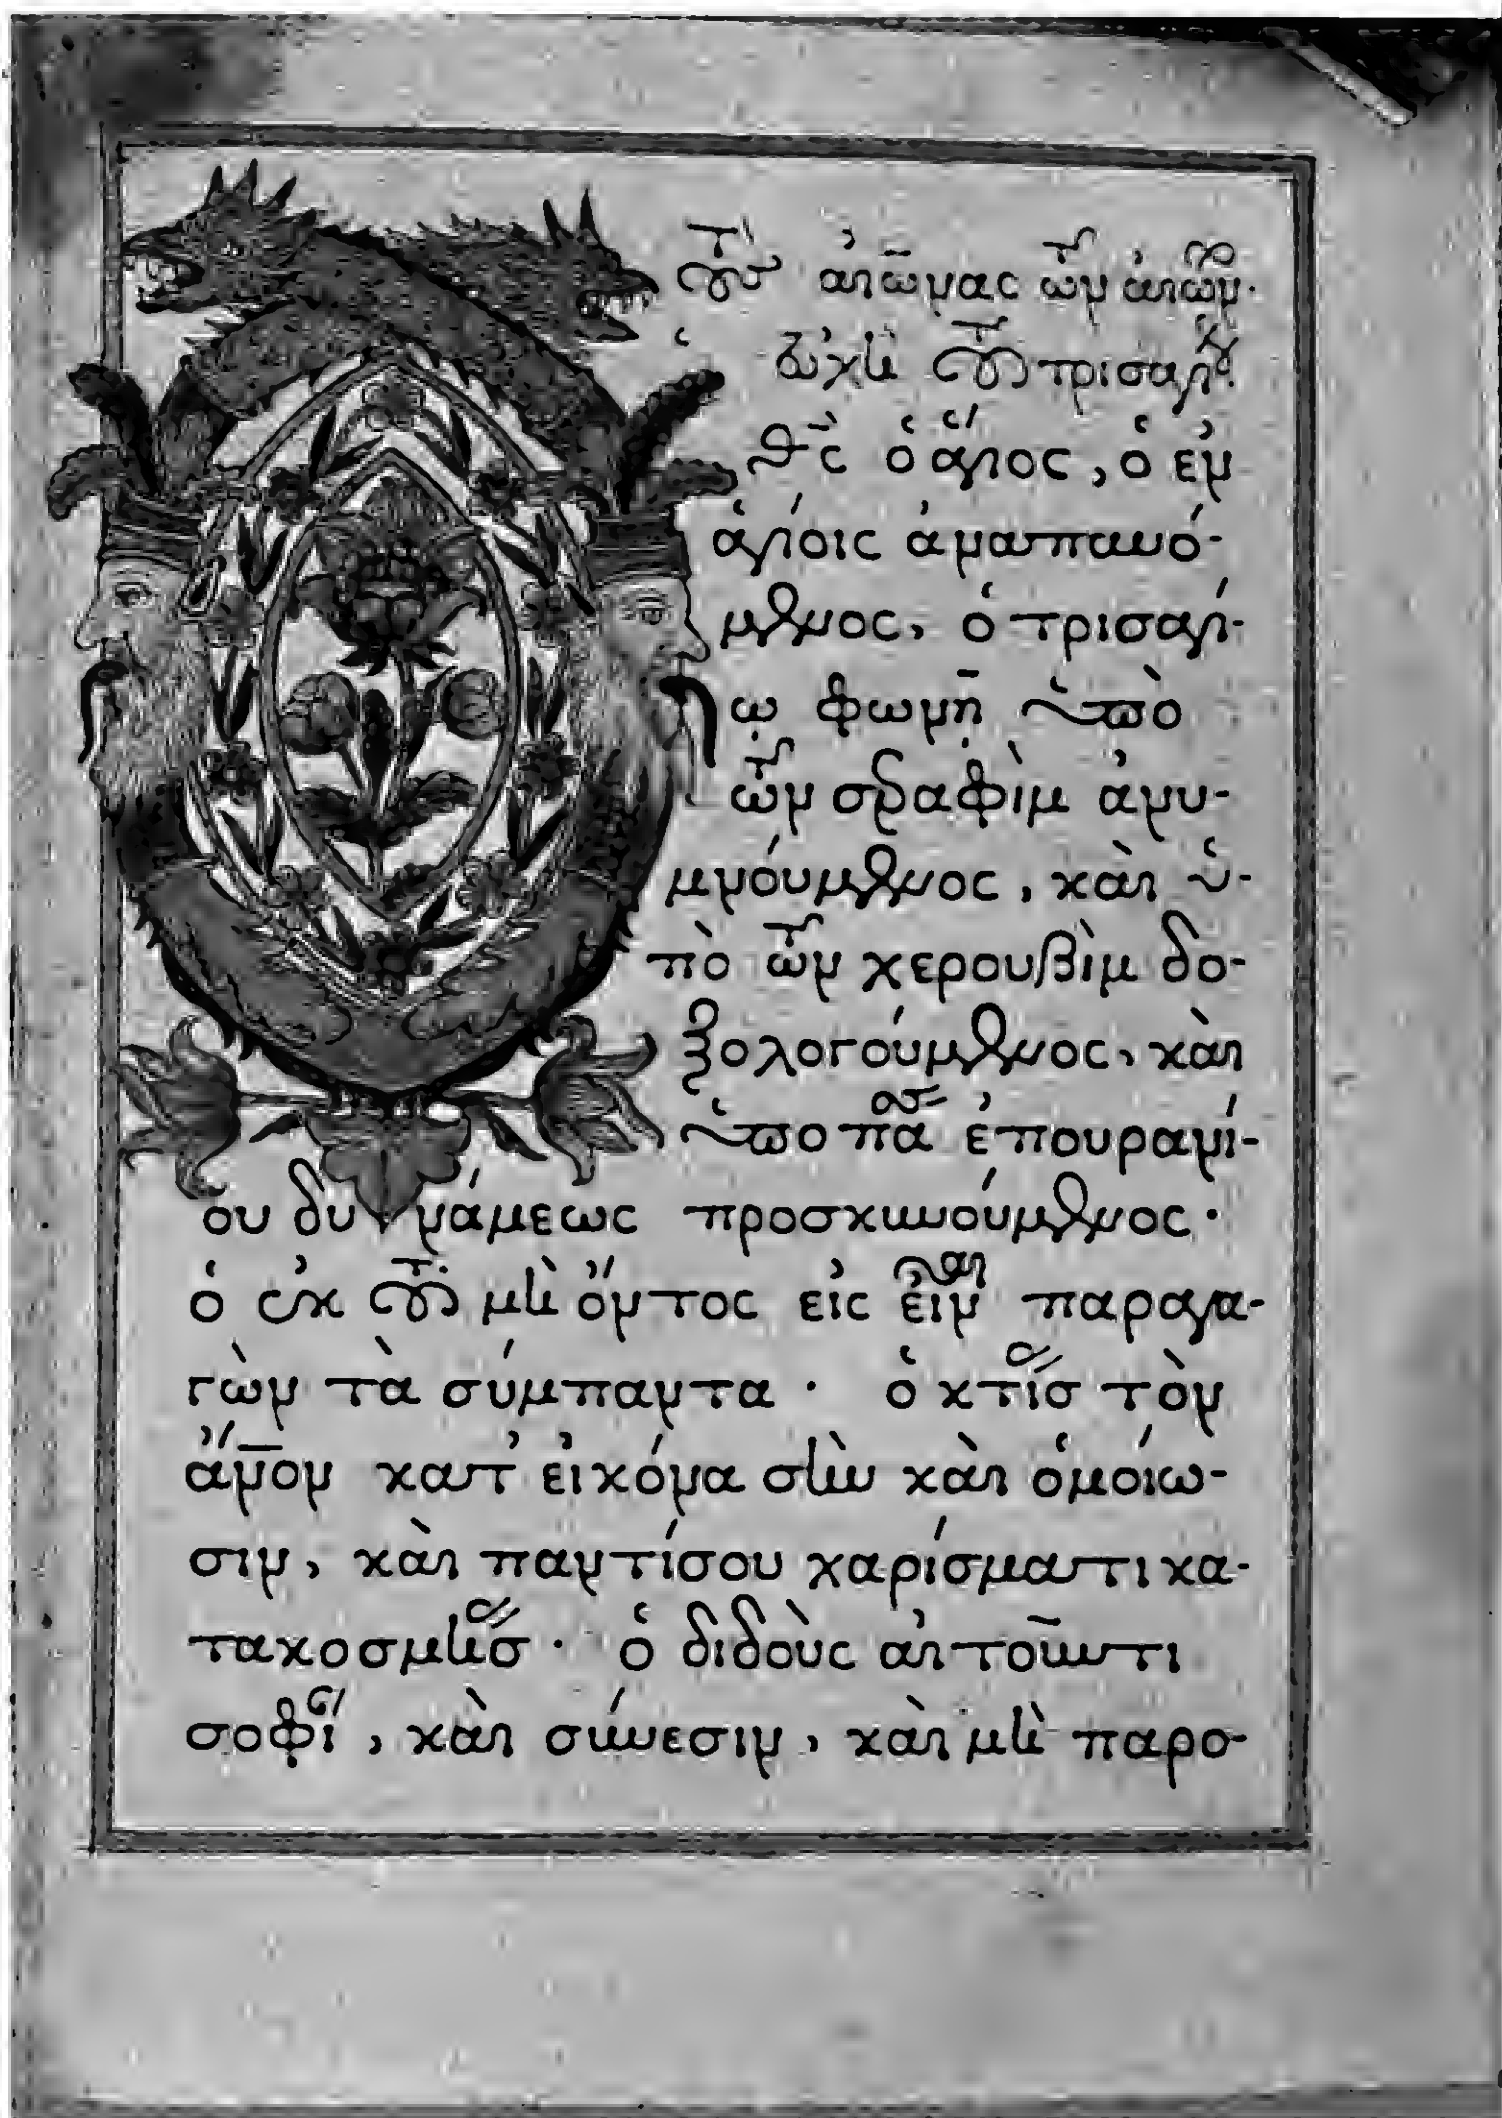 τοὺς αἰῶνας τῶν αἰώνων.
εὐχὴ τοῦ τρισαγίου.
Θς ὁ ἅγιος, ὁ ἐν
ἁγίοις ἀναπαυό-
μενος, ὁ τρισαγί-
ω φωνῇ ὑπὸ
τῶν σεραφὶμ ἀνυ-
μνούμενος, καὶ ὑ-
πὸ τῶν χερουβὶμ δο-
ξολογούμενος, καὶ
ὑπο πάσης ἐπουρανί-
ου δυνάμεως προσκυνούμενος·
ὁ ἐκ τοῦ μὴ ὄντος εἰς εἶναι παραγα-
γὼν τὰ σύμπαντα· ὁ κτίσας τὸν
ἄνον κατ' εἰκόνα σὴν καὶ ὁμοίω-
σιν, καὶ παντίσου χαρίσματι κα-
τακοσμήσας· ὁ διδοὺς αἰτοῦντι
σοφίαν, καὶ σύνεσιν, καὶ μὴ παρο-